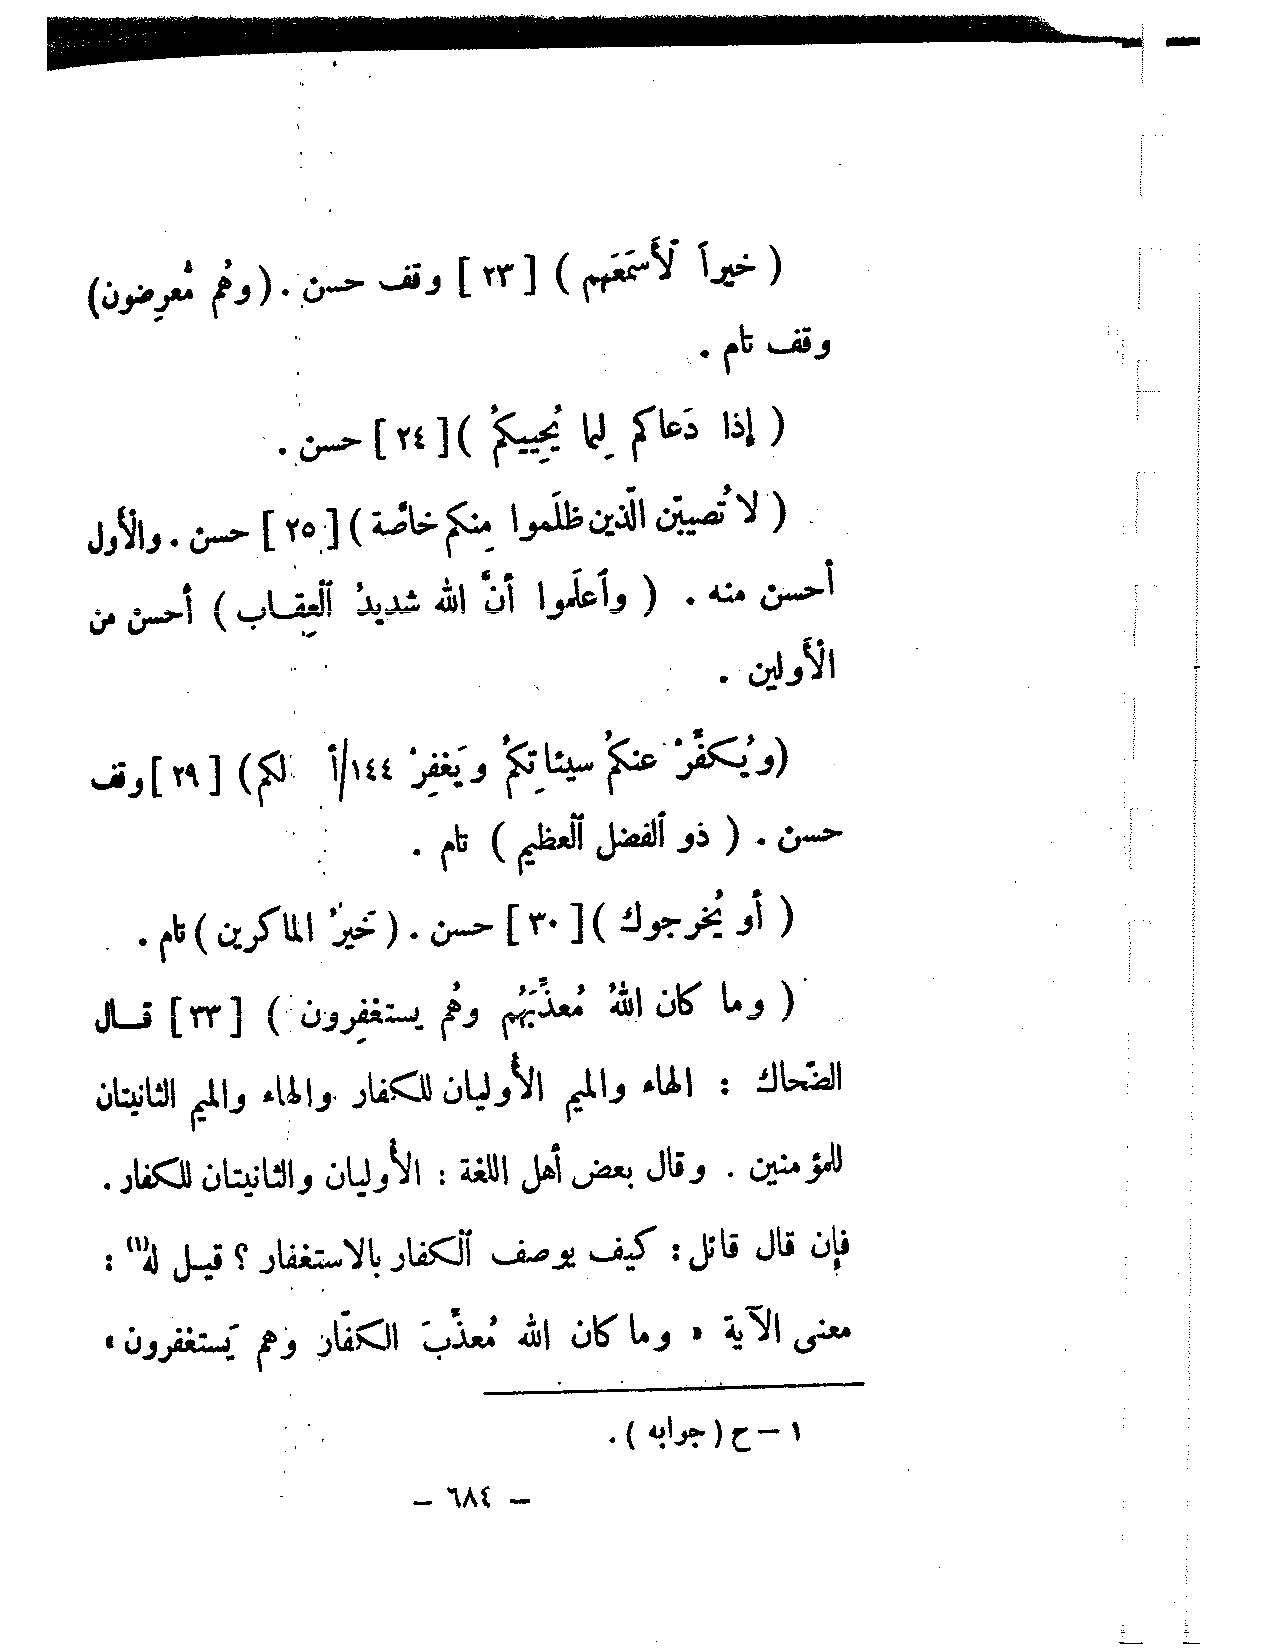 ( خيراً لَأَسمَعَهم ) [ ٢٣ ] وقف حسن . ( وهُم مُّعرِضون)
وقف تام .
( إِذا دَعاكم لِما يُحيِيكُم ) [ ٢٤ ] حسن .
( لا تُصيبَن الّذين ظلَموا مِنكم خاصَّة ) [ ٢٥ ] حسن . والأول
أحسن منه . ( وٱعلَموا أنَّ الله شديدُ ٱلعِقـاب ) أحسن من
الأولين .
(ويُكفِّرْ عنكُم سيئاتِكُم ويَغفِرْ ١٤٤/أ لكم) [ ٢٩ ] وقف
حسن . ( ذو ٱلفضل ٱلعظيم ) تام .
( أو يُخرجوك ) [ ٣٠ ] حسن . ( خَيرُ الماكرين ) تام .
( وما كان اللهُ مُعذِّبَهُم وهُم يستغفِرون ) [ ٣٣ ] قـال
الضّحاك : الهاء والميم الأوليان للكفار والهاء والميم الثانيتان
للمؤمنين . وقال بعض أهل اللغة : الأوليان والثانيتان للكفار .
فإن قال قائل : كيف يوصف ٱلكفار بالاستغفار ؟ قيـل له(١) :
معنى الآية « وما كان الله مُعذِّبَ الكفّار وهم يَستغفرون »
١ – ح ( جوابه ) .
– ٦٨٤ –